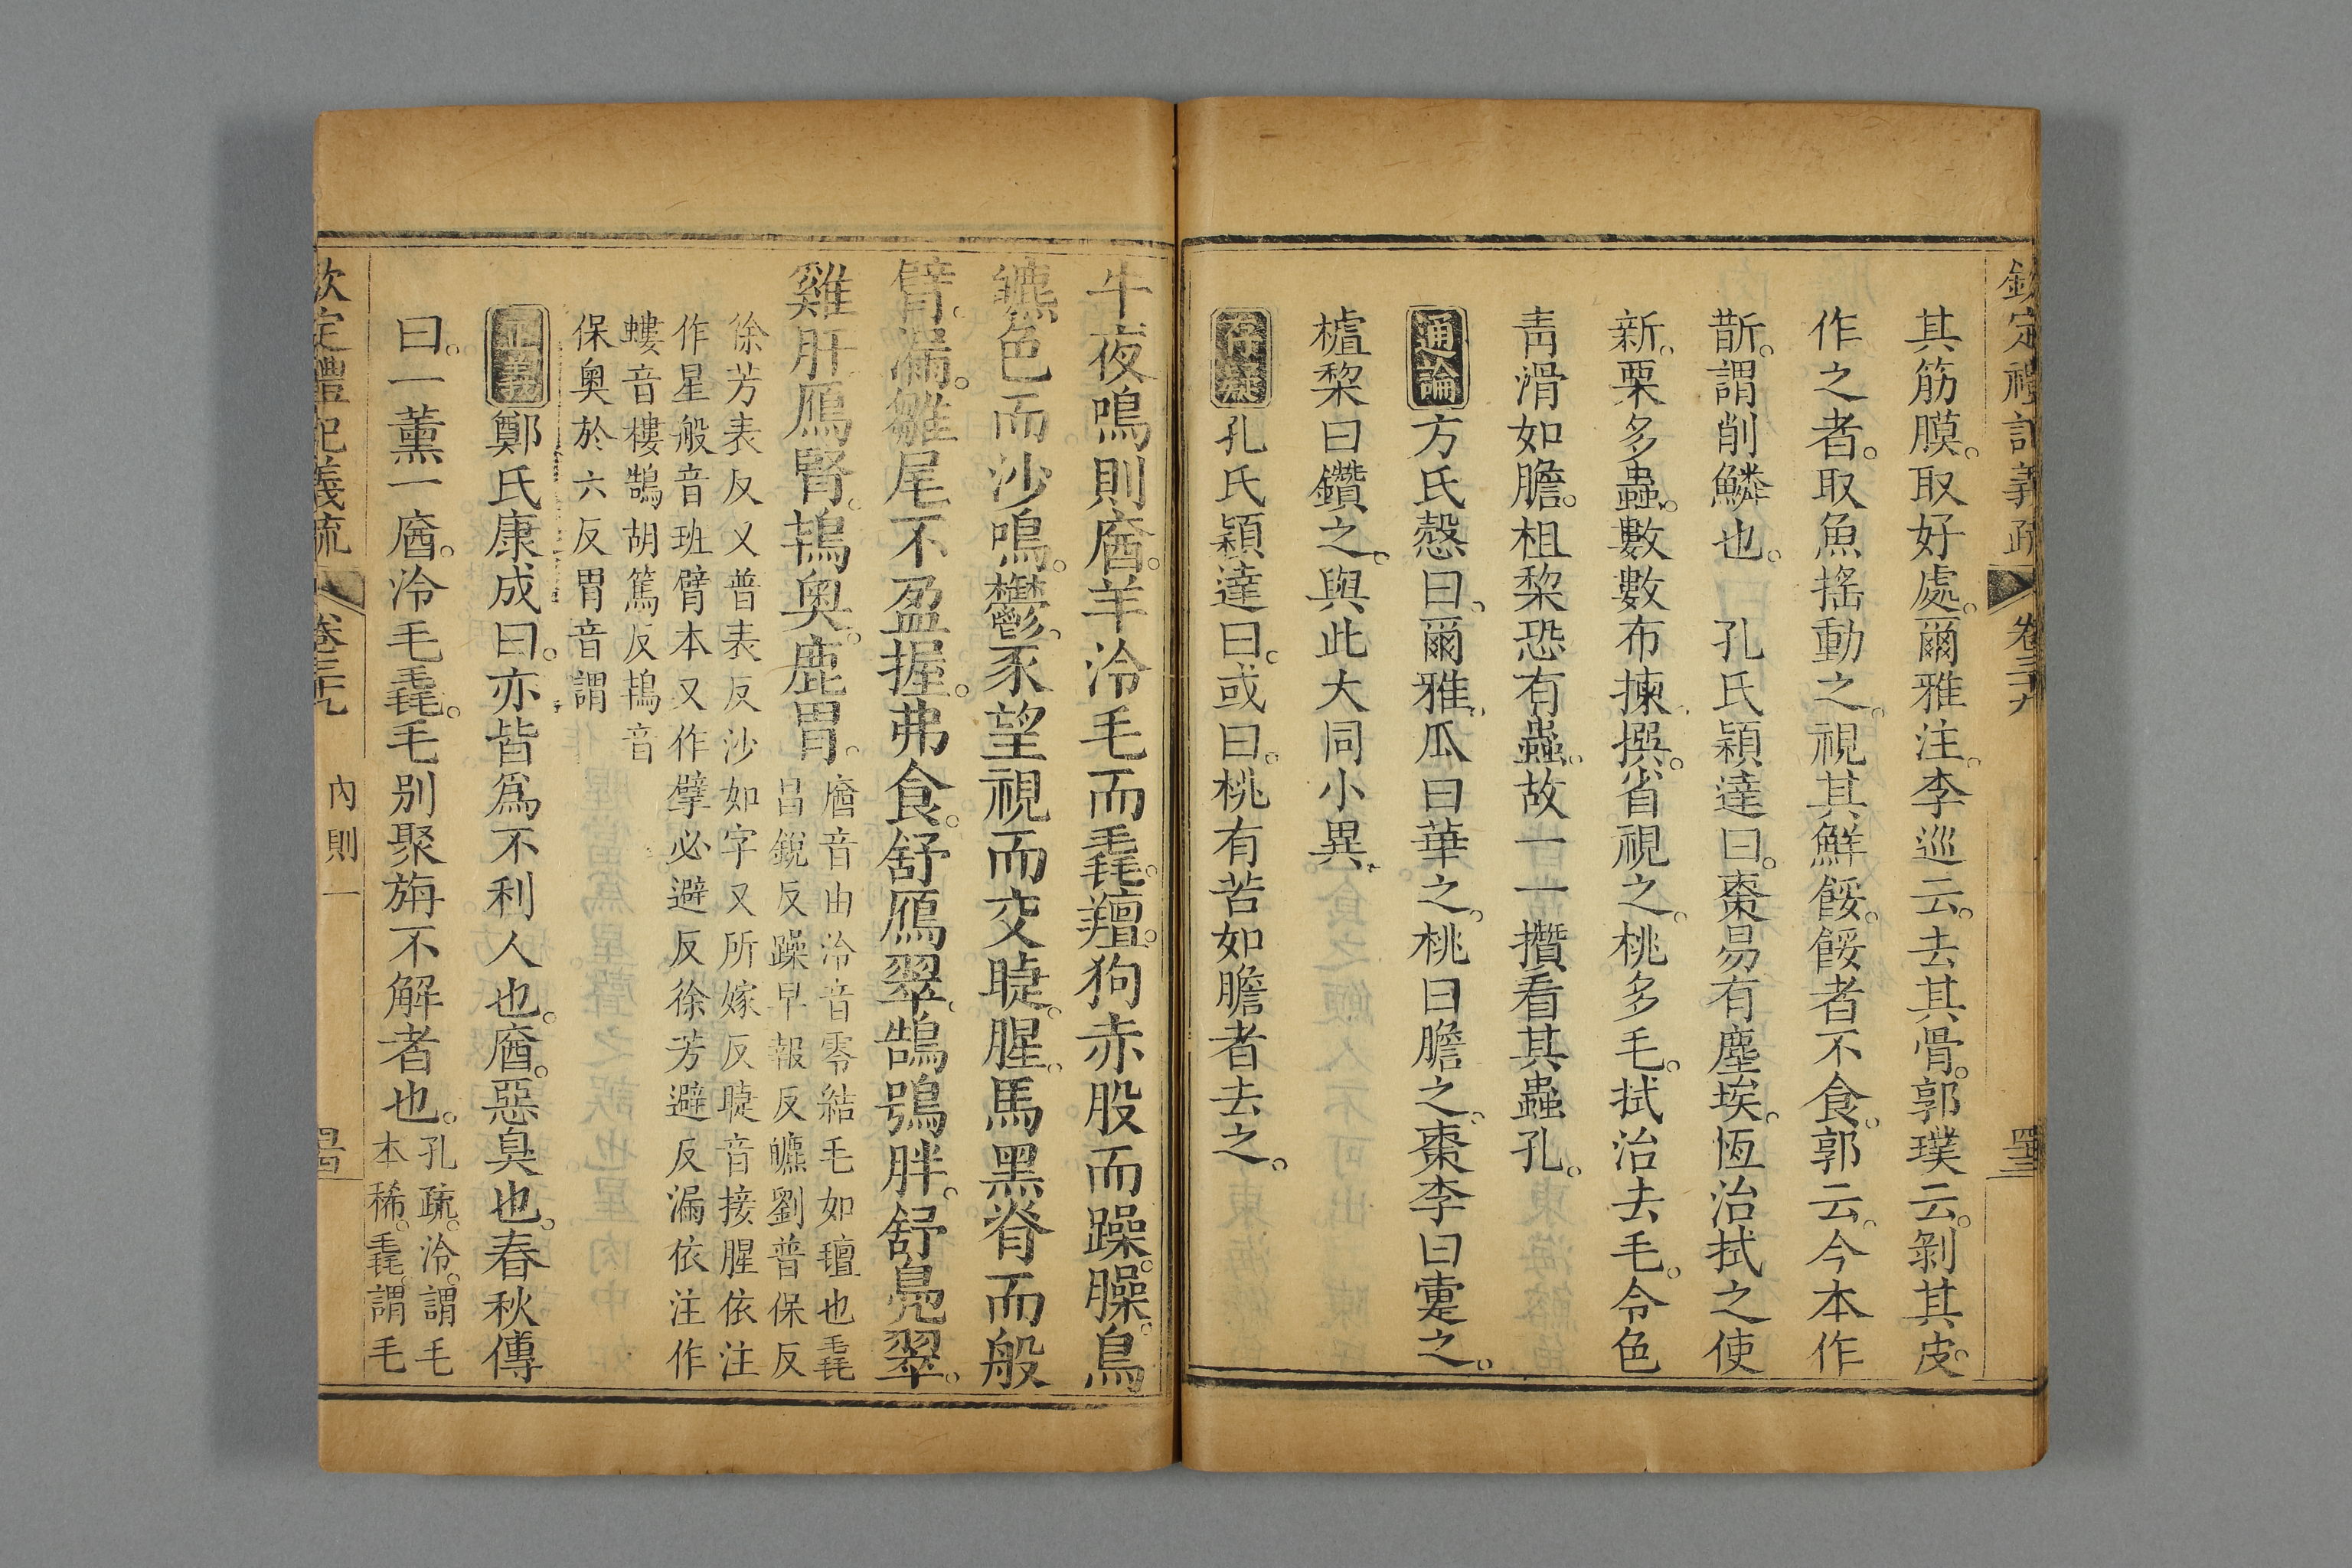 欽定禮記義疏 卷三十九
其筋膜。取好處。爾雅注。李巡云。去其骨。郭璞云。剝其皮。
作之者。取魚搖動之。視其鮮餒。餒者不食。郭云。今本作
斮。謂削鱗也。 孔氏穎達曰。棗易有塵埃。恆治拭之使
新。栗多蟲。數數布揀撰。省視之。桃多毛。拭治去毛。令色
靑滑如膽。柤棃恐有蟲。故一一攢看其蟲孔。
通論 方氏慤曰。爾雅。瓜曰華之。桃曰膽之。棗李曰疐之。
樝棃曰鑽之。與此大同小異。
存疑 孔氏穎達曰。或曰。桃有苦如膽者去之。
牛夜鳴則庮。羊泠毛而毳。羶。狗赤股而躁。臊。鳥
皫色而沙鳴。鬱。豕望視而交睫。腥。馬黑脊而般
臂。漏。雛尾不盈握。弗食。舒鴈翠。鵠鴞胖。舒鳧翠。
雞肝。鴈腎。鴇奧。鹿胃。
庮音由泠音零結毛如氊也毳
昌銳反躁早報反皫劉普保反
徐芳表反又普表反沙如字又所嫁反睫音接腥依注
作星般音班臂本又作擘必避反徐芳避反漏依注作
螻音樓鵠胡篤反鴇音
保奧於六反胃音謂
正義 鄭氏康成曰。亦皆爲不利人也。庮。惡臭也。春秋傳
曰。一薰一庮。泠毛毳。毛別聚旃不解者也。
孔疏。泠。謂毛
本稀。毳。謂毛
欽定禮記義疏 卷三十九 內則一